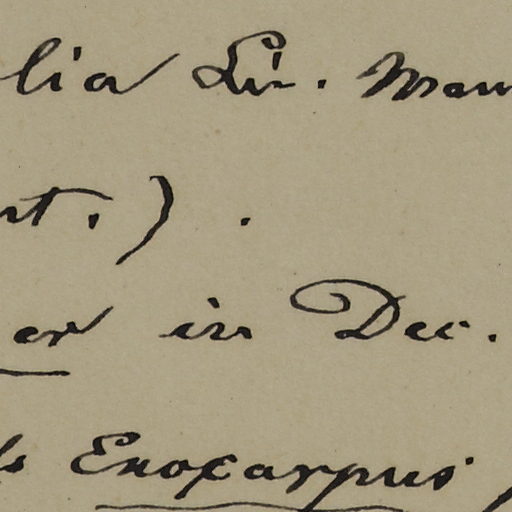 lia Lin. Mau
nt.).
er in Dec.
ls Exocarpus